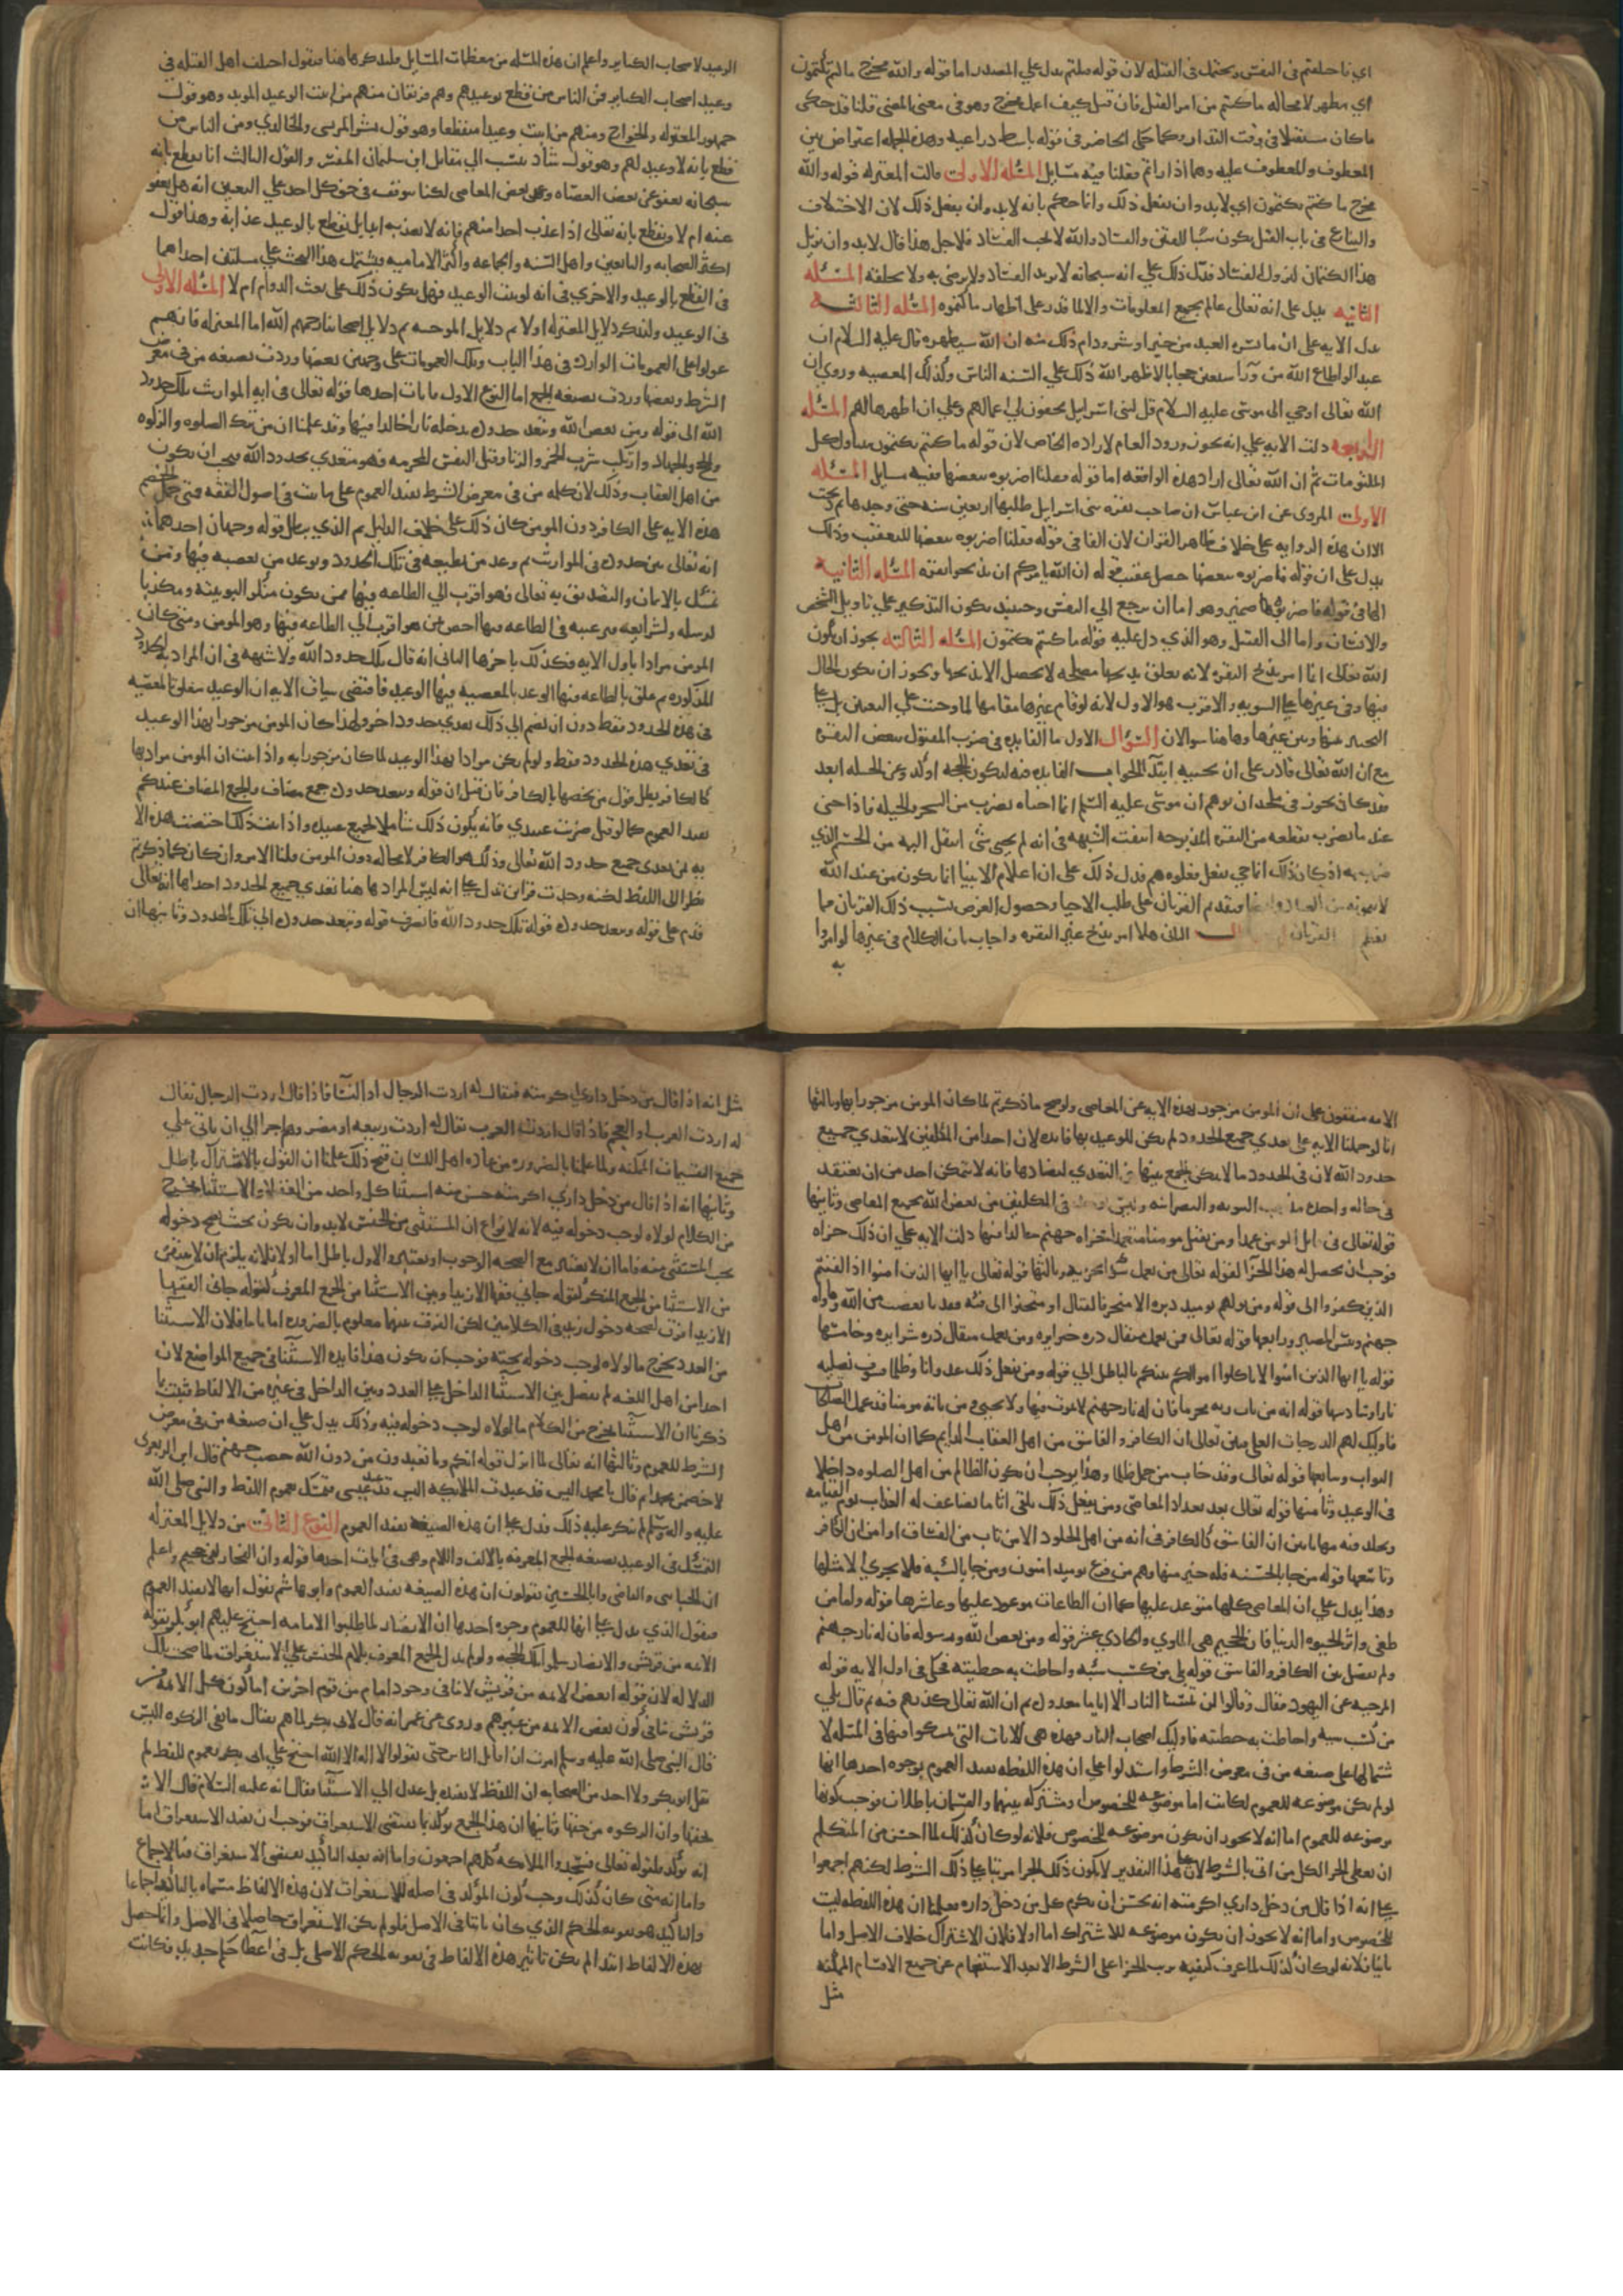 اي فاختلفتم في النفس ويحتمل في القتله لان قوله قتلتم يدل علي المصدر اما قوله والله مخرج ما كنتم تكتمون
اي مظهر لا محاله ما كتمتم من امر القتل فان قيل كيف اعمل مخرج وهو في معنى المضي قلنا قد حكى
ما كان مستقبلا في وقت التدارء كما حكى الحاضر في قوله باسط ذراعيه وهذه الجمله اعتراض بين
المعطوف والمعطوف عليه وهما اذاراتم فقلنا وفيه مسايل المسئله الاولى قالت المعتزله قوله والله
مخرج ما كنتم تكتمون اي لابد وان يفعل ذلك وانما حكم بانه لابد وان يفعل ذلك لان الاختلاف
والتنازع في باب القتل يكون سببا للفتن والفساد والله لا يحب الفساد فلاجل هذا قال لابد وان يزيل
هذا الكتمان ليزول الفساد فدل ذلك علي انه سبحانه لا يريد الفساد ولا يرضى به ولا يخلقه المسئله
الثانيه يدل على انه تعالى عالم بجميع المعلومات والا لما قدر على اظهار ما كتموه المسئله الثالثه
يدل الايه على ان ما يسره العبد من خير او شر ودام ذلك منه ان الله سيظهره قال عليه السلام ان
عبدا لو اطاع الله من وراء سبعين حجابا لاظهر الله ذلك علي السنه الناس وكذلك المعصيه وروي ان
الله تعالى اوحي الى موسى عليه السلام قل لبني اسرايل يخفون لي اعمالهم وعلي ان اظهرها لهم المسئله
الرابعه دلت الايه علي انه يجوز ورود العام لاراده الخاص لان قوله ما كنتم تكتمون يتناول كل
المكتومات ثم ان الله تعالى اراد هذه الواقعه اما قوله فقلنا اضربوه ببعضها ففيه مسايل المسئله
الاولى المروي عن ابن عباس ان صاحب بقره بني اسرايل طلبها اربعين سنه حتى وجدها ثم ذبحت
الا ان هذه الروايه على خلاف ظاهر القران لان الفا في قوله فقلنا اضربوه ببعضها للتعقيب وذلك
يدل على ان قوله فاضربوه ببعضها حصل عقيب قوله ان الله يامركم ان تذبحوا بقره المسئله الثانيه
الها في قوله فاضربوه ضمير وهو اما ان يرجع الي النفس وحينيذ يكون التذكير علي تاويل الشخص
والانسان واما الى القتيل وهو الذي دل عليه قوله ما كنتم تكتمون المسئله الثالثه يجوز ان يكون
الله تعالى انما امر بذبح البقره لانه تعلق بذبحها مصلحه لا تحصل الا بذبحها ويجوز ان يكون الحال
فيها وفي غيرها على السويه والاقرب هو الاول لانه لو قام غيرها مقامها لما وجبت على التعيين بل على
التخيير بينها وبين غيرها وهاهنا سوالان السؤال الاول ما الفايده في ضرب المقتول ببعض البقره
مع ان الله تعالى قادر على ان يحييه ابتدا الجواب الفايده فيه لتكون الحجه اوكد وعن الحيله ابعد
فقد كان يجوز في ملحد ان يوهم ان موسى عليه السلم انما احياه بضرب من السحر والحيله فاذا حيي
عند ما يضرب بقطعه من البقره المذبوحه انتفت الشبهه في انه لم يحيى بشي انتقل اليه من الجسم الذي
ضرب به اذ كان ذلك انما حي بفعل فعلوه هم فدل ذلك على ان اعلام الانبيا انما يكون من عند الله
لا بتمويه من العباد وايضا فتقديم القربان على طلب الاحيا وحصول الغرض بسبب ذلك القربان مما
يعظم القربان الثاني هلا امر بذبح غير البقره واجاب بان الكلام في غيرها لو امروا
به
الوعيد لاصحاب الكباير واعلم ان هذه المسئله من معظمات المسايل ولنذكرها هنا فنقول اختلف اهل القبله في
وعيد اصحاب الكباير فمن الناس من قطع بوعيدهم وهم فريقان منهم من اثبت الوعيد المؤبد وهو قول
جمهور المعتزله والخوارج ومنهم من اثبت وعيدا منقطعا وهو قول بشر المريسي والخالدي ومن الناس من
قطع بانه لا وعيد لهم وهو قول شاذ ينسب الي مقاتل ابن سليمان المفسر والقول الثالث انا نقطع بانه
سبحانه يعفو عن بعض العصاه وعن بعض المعاصي لكنا نتوقف في حق كل احد علي التعيين انه هل يعفو
عنه ام لا ونقطع بانه تعالى اذا عذب احدا منهم فانه لا يعذبه ابدا بل يقطع بالوعيد عذابه وهذا قول
اكثر الصحابه والتابعين واهل السنه والجماعه واكثر الاماميه فيشتمل هذا البحث علي مسئلتين احداهما
في القطع بالوعيد والاخري في انه لو ثبت الوعيد فهل يكون ذلك على نعت الدوام ام لا المسئله الاولى
في الوعيد ولنذكر دلايل المعتزله اولا ثم دلايل المرجيه ثم دلايل اصحابنا رحمهم الله اما المعتزله فانهم
عولوا على العمومات الوارده في هذا الباب وتلك العمومات على وجهين بعضها وردت بصيغه من في معرض
الشرط وبعضها وردت بصيغه الجمع اما النوع الاول فايات احدها قوله تعالى في ايه المواريث تلك حدود
الله الى قوله ومن يعص الله ويتعد حدوده يدخله نارا خالدا فيها وقد علمنا ان من ترك الصلوه والزكوه
والحج والجهاد وارتكب شرب الخمر والزنا وقتل النفس المحرمه فهو متعدي لحدود الله فيجب ان يكون
من اهل العقاب وذلك لان كلمه من في معرض الشرط تفيد العموم على ما ثبت في اصول الفقه فمتى حمل الخصم
هذه الايه على الكافر دون المومن كان ذلك على خلاف الدليل ثم الذي يبطل قوله وجهان احدهما
انه تعالى بين حدوده في المواريث ثم وعد من يطيعه في تلك الحدود وتوعد من يعصيه فيها ومن
تمسك بالايمان والتصديق به تعالى فهو اقرب الي الطاعه فيها ممن يكون منكرا لربوبيته ومكذبا
لرسله ولشرايعه فترغيبه في الطاعه فيها اخص ممن هو اقرب الي الطاعه فيها وهو المومن ومتى كان
المومن مرادا باول الايه فكذلك باخرها الثاني انه قال تلك حدود الله ولا شبهه في ان المراد به الحدود
المذكوره ثم علق بالطاعه فيها الوعد بالمعصيه فيها الوعيد فاقتضى سياق الايه ان الوعيد متعلق بالمعصيه
في هذه الحدود فقط دون ان يضم الي ذلك تعدي حدود اخر ولهذا كان المومن مزجورا بهذا الوعيد
في تعدي هذه الحدود فقط ولو لم يكن مرادا بهذا الوعيد لما كان مزجورا به واذا ثبت ان المومن مراد بها
كالكافر بطل قول من يخصها بالكافر فان قيل ان قوله ويتعد حدوده جمع مضاف والجمع المضاف عندكم
يفيد العموم كما لو قيل ضربت عبيدي فانه يكون ذلك شاملا لجميع عبيده واذا ثبت ذلك اختصت هذه الايه
به لمن تعدى جميع حدود الله تعالى وذلك هو الكافر لا محاله دون المومن قلنا الامر وان كان كما ذكرتم
نظرا الى اللفظ لكنه وجدت قراين تدل على انه ليس المراد هاهنا تعدي جميع الحدود احداها انه تعالى
قدم على قوله ويتعد حدوده قوله تلك حدود الله فانصرف قوله ويتعد حدوده الى تلك الحدود وثانيها ان
الامه متفقون على ان المومن مزجور بهذه الايه عن المعاصي ولو صح ما ذكرتم لما كان المومن مزجورا بها وثالثها
انا لو حملنا الايه على تعدي جميع الحدود لم يكن للوعيد بها فايده لان احدا من المكلفين لا يتعدي جميع
حدود الله لان في الحدود ما لا يمكن الجمع بينها في التعدي لتضادها فانه لا يتمكن احد من ان يعتقد
في حاله واحده مذهب الثنويه والنصرانيه وليس يوجد في المكلفين من يعصي الله بجميع المعاصي وثانيها
قوله تعالى في قاتل المومن عمدا ومن يقتل مومنا متعمدا فجزاه جهنم خالدا فيها دلت الايه علي ان ذلك جزاه
فوجب ان يحصل له هذا الجزا لقوله تعالى من يعمل سوا يجز به وثالثها قوله تعالى يا ايها الذين امنوا اذا لقيتم
الذين كفروا الى قوله ومن يولهم يوميذ دبره الا متحرفا لقتال او متحيزا الى فئه فقد باء بغضب من الله وماواه
جهنم وبيس المصير ورابعها قوله تعالى فمن يعمل مثقال ذره خيرا يره ومن يعمل مثقال ذره شرا يره وخامسها
قوله يا ايها الذين امنوا لا تاكلوا اموالكم بينكم بالباطل الي قوله ومن يفعل ذلك عدوانا وظلما فسوف نصليه
نارا وسادسها قوله انه من يات ربه مجرما فان له نار جهنم لا يموت فيها ولا يحيى ومن ياته مومنا قد عمل الصالحات
فاوليك لهم الدرجات العلى فبين تعالى ان الكافر والفاسق من اهل العقاب الدايم كما ان المومن من اهل
الثواب وسابعها قوله تعالى وقد خاب من حمل ظلما وهذا يوجب ان يكون الظالم من اهل الصلوه داخلا
في الوعيد وثامنها قوله تعالى بعد تعداد المعاصي ومن يفعل ذلك يلق اثاما يضاعف له العذاب يوم القيامه
ويخلد فيه مهانا بين ان الفاسق كالكافر في انه من اهل الخلود الا من تاب من الفساق او امن من الكافر
وتاسعها قوله من جا بالحسنه فله خير منها وهم من فزع يوميذ امنون ومن جا بالسيه فلا يجزى الا مثلها
وهذا يدل علي ان المعاصي كلها متوعد عليها كما ان الطاعات موعود عليها وعاشرها قوله واما من
طغى واثر الحيوه الدنيا فان الجحيم هي الماوي والحادي عشر قوله ومن يعص الله ورسوله فان له نار جهنم
ولم يفصل بين الكافر والفاسق قوله بلى من كسب سيه واحاطت به خطيته فحكى في اول الايه قوله
المرجيه عن اليهود فقال وقالوا لن تمسنا النار الا اياما معدوده ثم ان الله تعالى كذبهم فيه ثم قال بلى
من كسب سيه واحاطت به خطيته فاوليك اصحاب النار فهذه هي الايات التي تمسكوا فيها في المسئله لا
شتمالها على صيغه من في معرض الشرط واستدلوا علي ان هذه اللفظه تفيد العموم بوجوه احدها انها
لو لم يكن موضوعه للعموم لكانت اما موضوعه للخصوص او مشتركه بينهما والقسمان باطلان فوجب كونها
موضوعه للعموم اما انه لا يجوز ان يكون موضوعه للخصوص فلانه لو كان كذلك لما احسن من المتكلم
ان يعطى الجزا لكل من اتى بالشرط لان على هذا التقدير لا يكون ذلك الجزا مرتبا على ذلك الشرط لكنهم اجمعوا
على انه اذا قال من دخل داري اكرمته انه يحسن ان يكرم كل من دخل داره فعلمنا ان هذه اللفظه ليست
للخصوص واما انه لا يجوز ان يكون موضوعه للاشتراك اما اولا فلان الاشتراك خلاف الاصل واما
ثانيا فلانه لو كان كذلك لما عرف كيفيه ترتب الجزا على الشرط الا بعد الاستفهام عن جميع الاقسام الممكنه
مثل
مثل انه اذا قال من دخل داري اكرمته فيقال له اردت الرجال او النسا فاذا قال اردت الرجال يقال
له اردت العرب او العجم فاذا قال اردت العرب يقال له اردت ربيعه او مضر وهلم جرا الي ان ياتي علي
جميع التقسيمات الممكنه ولما علمنا بالضروره من عاده اهل اللسان قبح ذلك علمنا ان القول بالاشتراك باطل
وثانيها انه اذا قال من دخل داري اكرمته حسن منه استثنا كل واحد من العقلا والاستثنا يخرج
من الكلام لولاه لوجب دخوله فيه لانه لا نزاع ان المستثنى من الجنس لابد وان يكون بحيث يصح دخوله
تحت المستثنى منه فاما ان لا يعتبر مع الصحه الوجوب او يعتبر والاول باطل اما اولا فلانه يلزم ان لا يبقى
من الاستثنا من الجمع المنكر كقوله جاني فقها الا زيدا وبين الاستثنا من الجمع المعرف كقوله جاني الفقها
الا زيدا فرق لصحه دخول زيد في الكلامين لكن الفرق بينهما معلوم بالضروره اما ثانيا فلان الاستثنا
من العدد يخرج ما لولاه لوجب دخوله تحته فوجب ان يكون هذا فايده الاستثنا في جميع المواضع لان
احدا من اهل اللغه لم يفصل بين الاستثنا الداخل على العدد وبين الداخل في غيره من الالفاظ فثبت بما
ذكرنا ان الاستثنا يخرج من الكلام ما لولاه لوجب دخوله فيه وذلك يدل علي ان صيغه من في معرض
الشرط للعموم وثالثها انه تعالى لما انزل قوله انكم وما تعبدون من دون الله حصب جهنم قال ابن الزبعرى
لاخصمن محمدا ثم قال يا محمد اليس قد عبدت الملائكه اليس قد عبد عيسى فتمسك بعموم اللفظ والنبي صلى الله
عليه واله وسلم لم ينكر عليه ذلك فدل على ان هذه الصيغه تفيد العموم النوع الثاني من دلايل المعتزله
التمسك في الوعيد بصيغه الجمع المعرفه بالالف واللام وهي في ايات احدها قوله وان الفجار لفي جحيم واعلم
ان الجبائي والقاضي وابا الحسين يقولون ان هذه الصيغه تفيد العموم وابو هاشم يقول انها لا تفيد العموم
فنقول الذي يدل على انها للعموم وجوه احدها ان الانصار لما طلبوا الامامه احتج عليهم ابو بكر بقوله
الائمه من قريش والانصار سلموا تلك الحجه ولو لم يدل الجمع المعرف بلام الجنس علي الاستغراق لما صحت تلك
الدلاله لان قوله بعض الائمه من قريش لا ينافي وجود امام من قوم اخرين اما كون كل الائمه من
قريش ينافي كون بعض الائمه من غيرهم وروي عن عمر انه قال لابي بكر لما هم بقتال مانعي الزكوه اليس
قال النبي صلى الله عليه وسلم امرت ان اقاتل الناس حتى يقولوا لا اله الا الله احتج علي ابي بكر بعموم اللفظ ثم
لم يقل ابو بكر ولا احد من الصحابه ان اللفظ لا يفيده بل عدل الي الاستثنا فقال انه عليه السلام قال الا
بحقها وان الزكوه من حقها وثانيها ان هذا الجمع يؤكد بما يقتضي الاستغراق فوجب ان يفيد الاستغراق اما
انه يؤكد فلقوله تعالى فسجد الملائكه كلهم اجمعون واما انه بعد التاكيد يقتضي الاستغراق فبالاجماع
واما انه متى كان كذلك وجب كون المؤكد في اصله للاستغراق لان هذه الالفاظ مسماه بالتاكيد اجماعا
والتاكيد هو تقويه الحكم الذي كان ثابتا في الاصل فلو لم يكن الاستغراق حاصلا في الاصل وانما حصل
بهذه الالفاظ ابتدا لم يكن تاثير هذه الالفاظ في تقويه الحكم الاصلي بل في اعطا حكم جديد فكانت